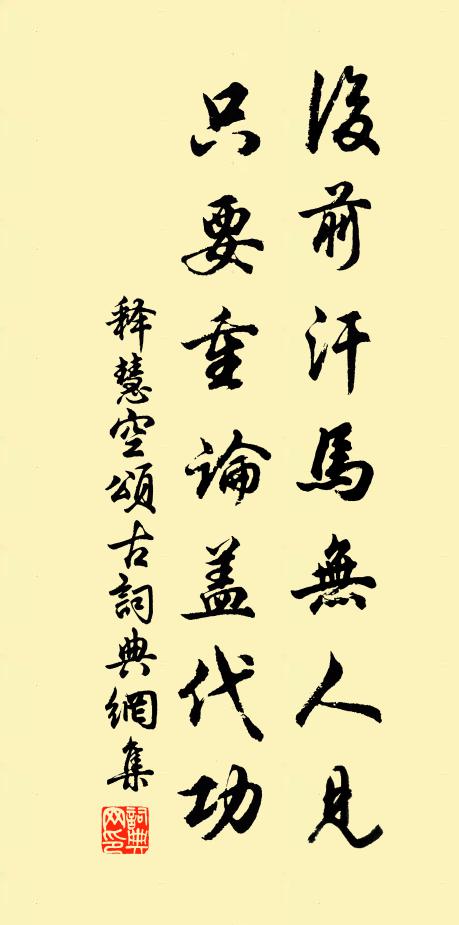 後前汗馬無人見
只要重論盖代功
释慧空頌古詞典網集
詞典網印